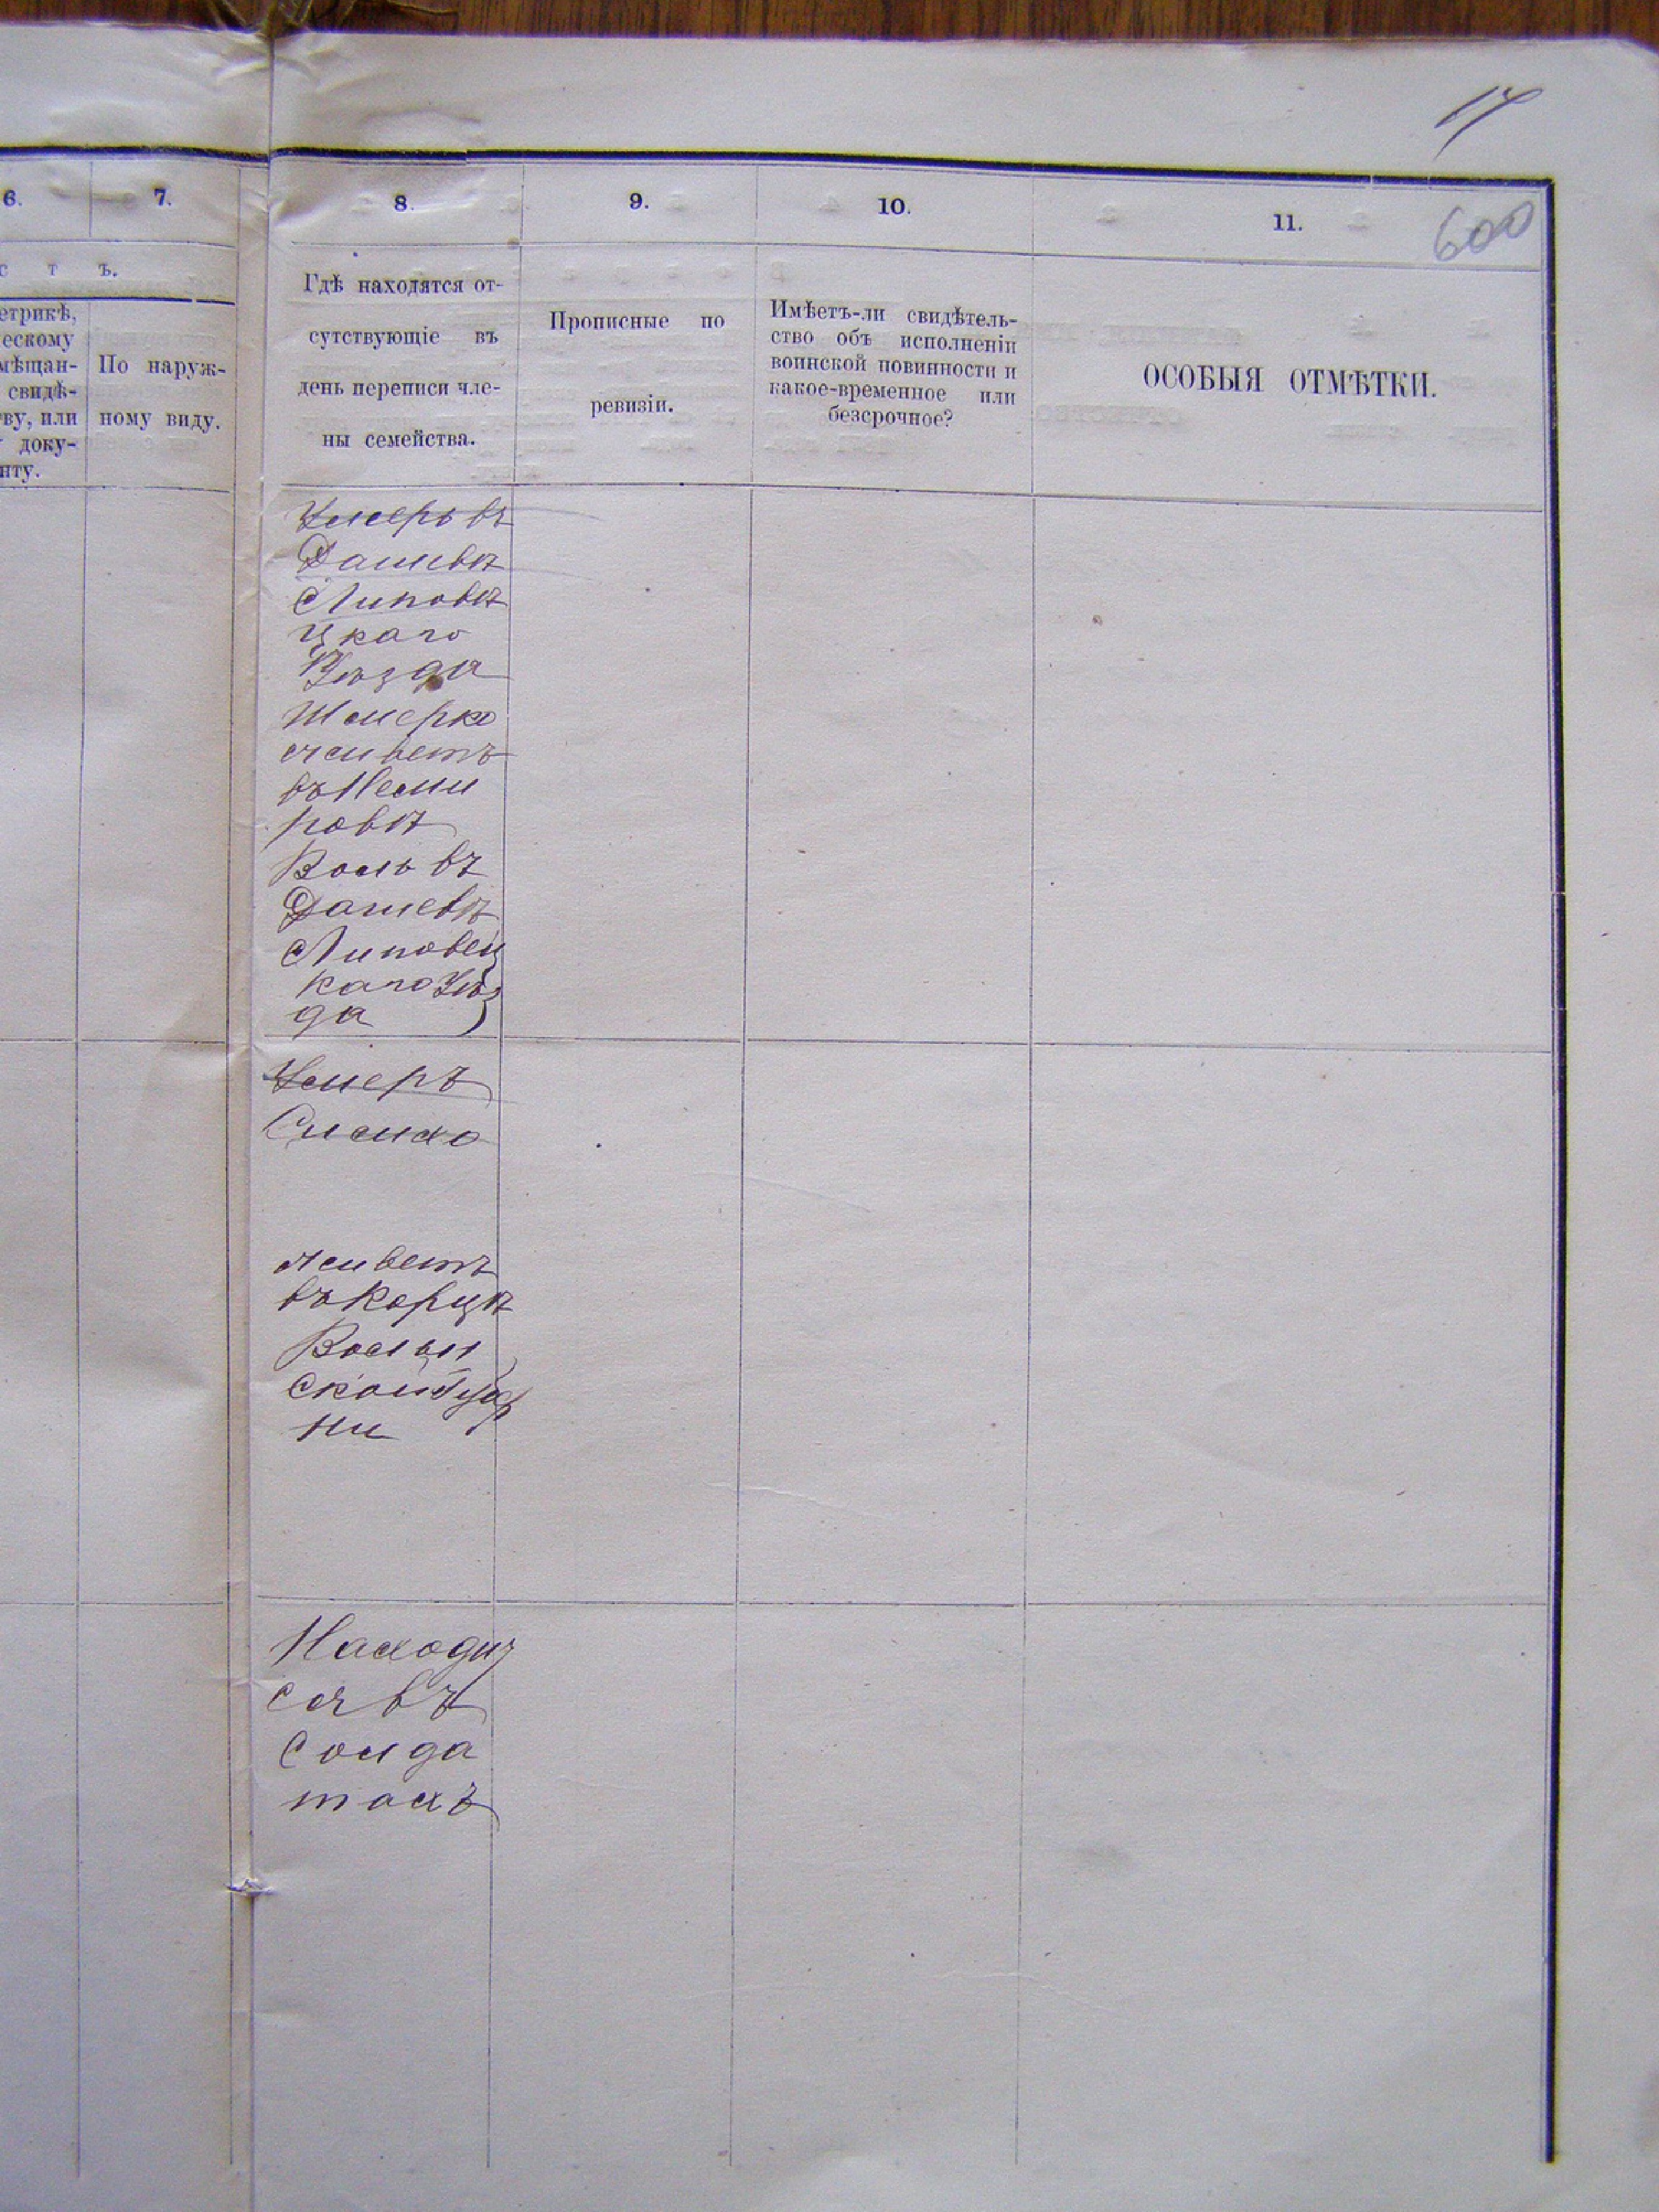 17
6.
7.
8.
9.
10.
11.
600
с т ъ.
етрикѣ,
ескому
мѣщан-
свидѣ-
ву, или
доку-
нту.
По наруж-
ному виду.
Гдѣ находятся от-
сутствующіе въ
день переписи чле-
ны семейства.
Прописные по
ревизіи.
Имѣетъ-ли свидѣтель-
ство объ исполненіи
воинской повинности и
какое-временное или
безсрочное?
ОСОБЫЯ ОТМѢТКИ.
Умеръ въ
Дашевѣ
Липове
цкаго
Уѣзда
Шмерко
живетъ
въ Неми
ровѣ
Воль въ
Дашевѣ
Липовец
каго Уѣз
да
Умеръ
Симхо
живетъ
въ Корцѣ
Волын
ской Губер
ніи
Находит
ся въ
Солда
тахъ